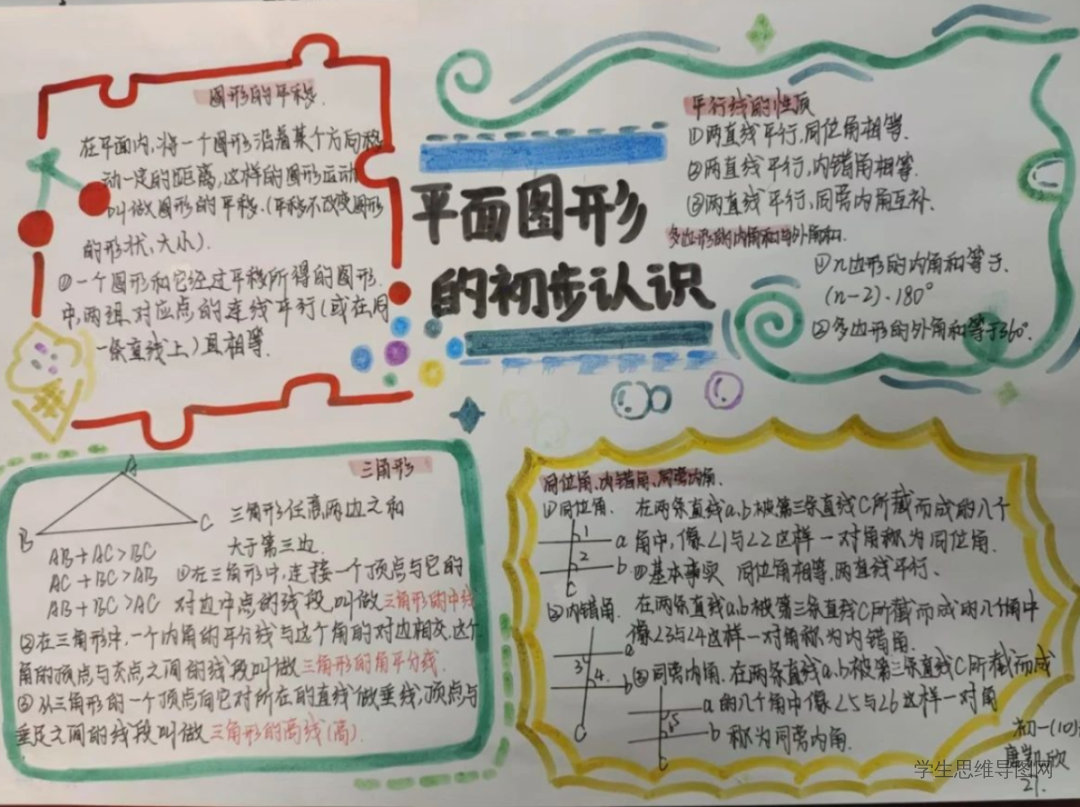 平面图形
的初步认识
图形的平移.
在平面内,将一个图形沿着某个方向移
动一定的距离,这样的图形运动
叫做图形的平移.(平移不改变图形
的形状、大小).
①一个图形和它经过平移所得的图形.
中,两组对应点的连线平行(或在同
一条直线上)且相等.
平行线的性质
①两直线平行,同位角相等.
②两直线平行,内错角相等.
③两直线平行,同旁内角互补.
多边形的内角和与外角和.
①n边形的内角和等于.
(n-2)·180°
②多边形的外角和等于360°.
三角形
A
B
C
三角形任意两边之和
大于第三边.
AB+AC>BC
AC+BC>AB
AB+BC>AC
①在三角形中,连接一个顶点与它的
对边中点的线段,叫做三角形的中线
②在三角形中,一个内角的平分线与这个角的对边相交,这个
角的顶点与交点之间的线段叫做三角形的角平分线.
③从三角形的一个顶点向它对所在的直线做垂线,顶点与
垂足之间的线段叫做三角形的高线(高).
同位角、内错角、同旁内角.
①同位角. 在两条直线a、b被第三条直线C所截而成的八个
角中,像∠1与∠2这样一对角称为同位角.
①基本事实 同位角相等,两直线平行、
1
a
2
b
C
②内错角. 在两条直线a、b被第三条直线C所截而成的八个角中
像∠3与∠4这样一对角称为内错角.
a
3
4.
b
C
③同旁内角.在两条直线a、b被第三条直线C所截而成
的八个角中像∠5与∠6这样一对角
称为同旁内角.
a
5
b
C
初一(10)
唐凯欣
21.
学生思维导图网